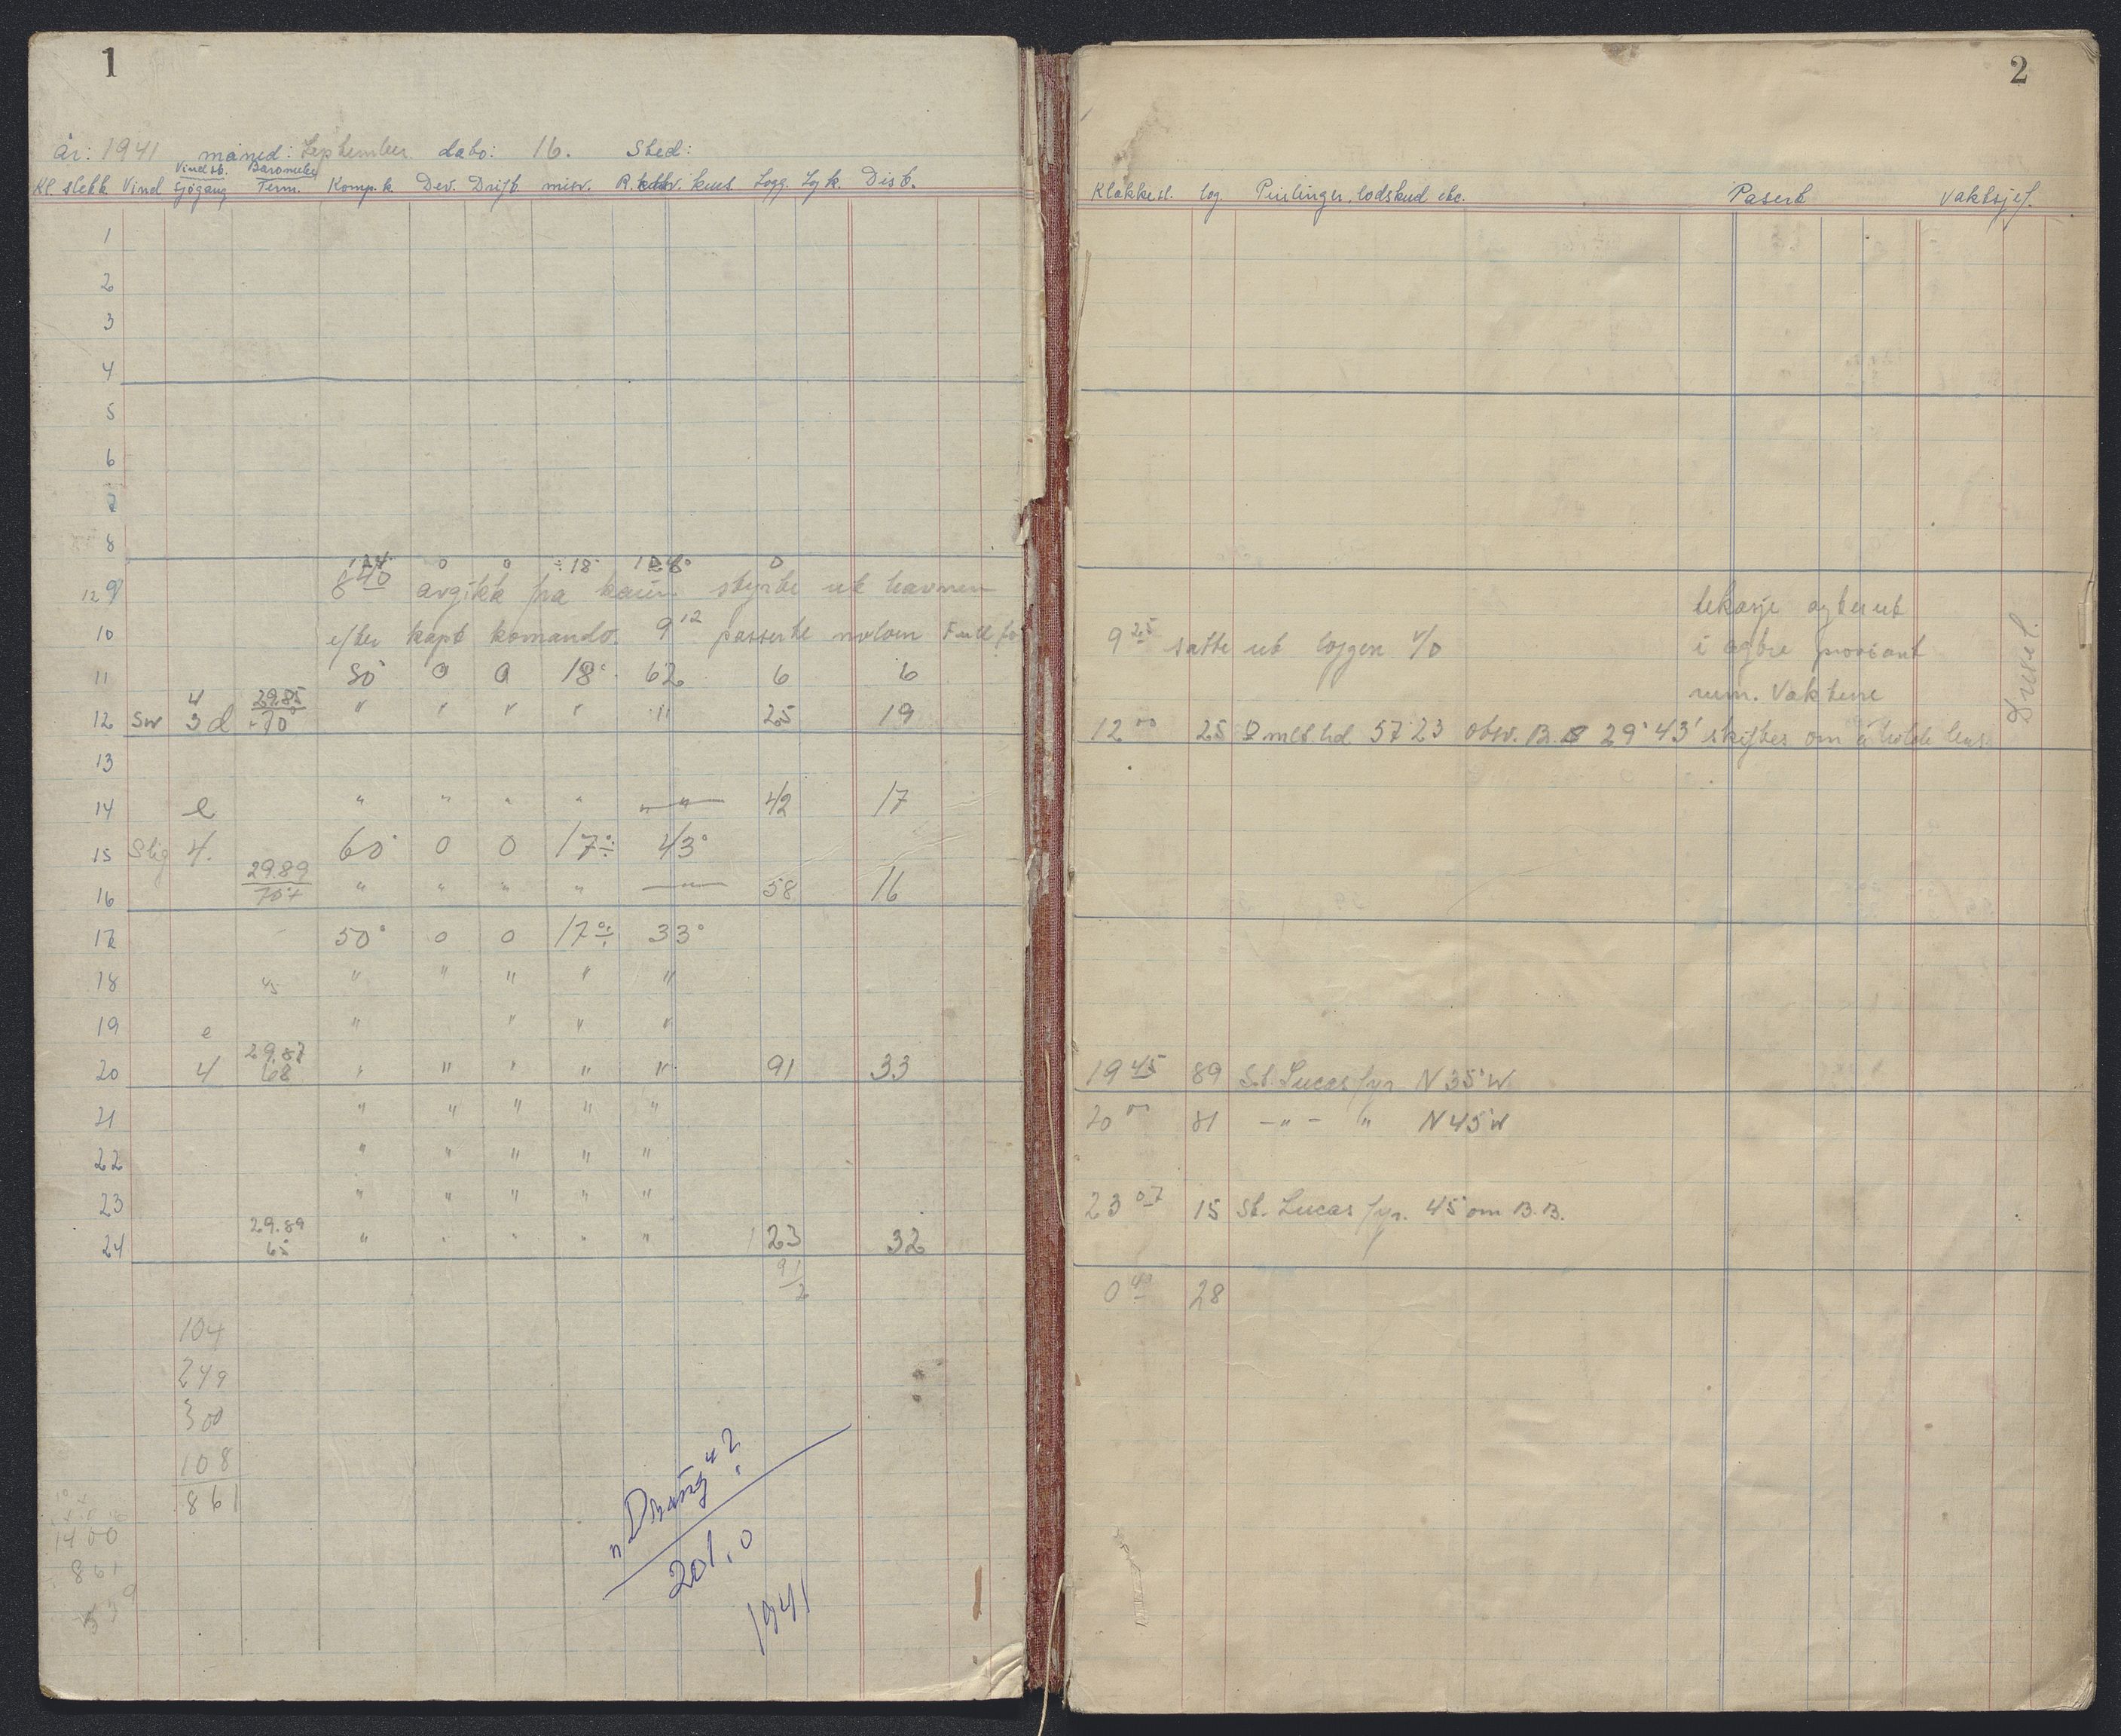 1
år: 1941 måned: September dato: 16. Sted:
Kl. slett Vind Vindst. Sjögang Barometer Term. Komp. k. Dev. Drift misv. R. kurs. Logg. Log k. Dist.
1
2
3
4
5
6
7
8
0 0 ÷18° 0
12 9 8 40 avgikk fra kaien styrte ut havnen
10 efter kapt komando. 9 12 passerte moloen Full
11 80° 0 0 18° 62 6 6
12 SW 4 3 d 29.85 70° " " " " " 25 19
13
14 e " " " " " " 42 17
15 Stig 4. 60° 0 0 17°÷ 43°
16 29.89 70+ " " " " " 58 16
17 50° 0 0 17°÷ 33°
18 " " " " "
19 e " " " "
20 4 29.87 68 " " " " " 91 33
21 " " " " "
22 " " " " "
23 " " " " "
24 29.89 65 " " " " " 123 32
91
2
104
249
300
108
861
1400
861
539
"Dræng"?
201.0
1941
2
Klokkesl. log. Peilinger, lodskud etc. Pasert Vaktsjef.
lekasje agterut
9 25 satte ut loggen v/0 i agtre proviant
rum. Vaktene
12 00 25 mlt. hd. 57°23 obsv. B. 29° 43' skiftes om å holde lens.
19 45 89 St. Lucas fyr N 35° W
20 00 81 - " - " N 45° W
23 07 15 St. Lucas fyr. 45° om B.B.
0 40 28